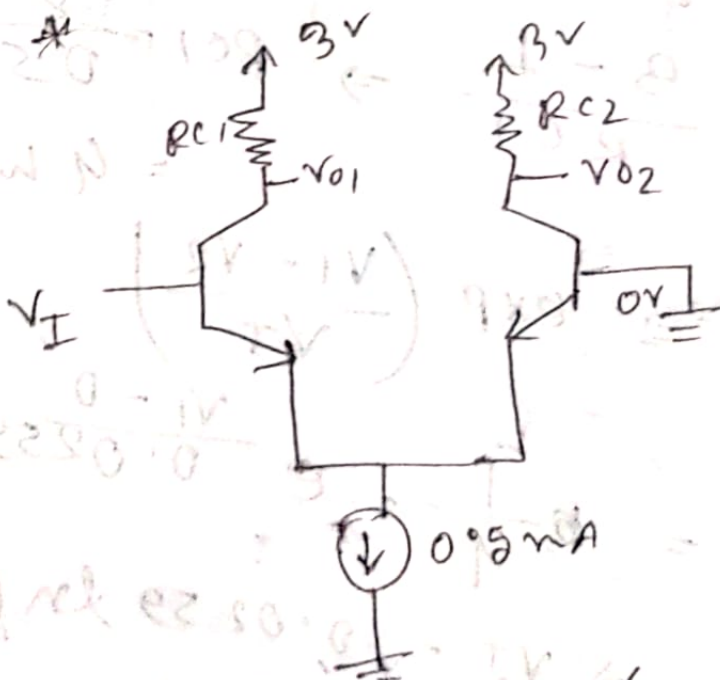 *
3V
3V
RC1
RC2
VO1
VO2
VI
0V
0.5mA